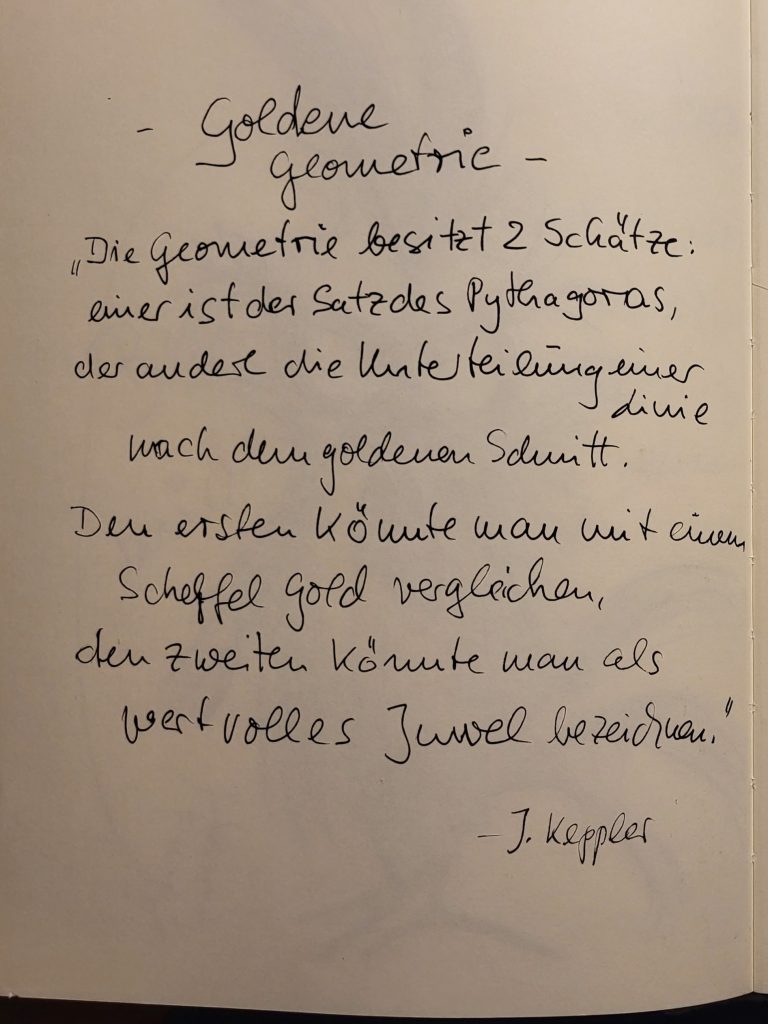 - Goldene
Geometrie -
„Die Geometrie besitzt 2 Schätze:
einer ist der Satz des Pythagoras,
der andere die Unterteilung einer
Linie
nach dem goldenen Schnitt.
Den ersten könnte man mit einem
Scheffel Gold vergleichen,
den zweiten könnte man als
wertvolles Juwel bezeichnen."
- J. Keppler